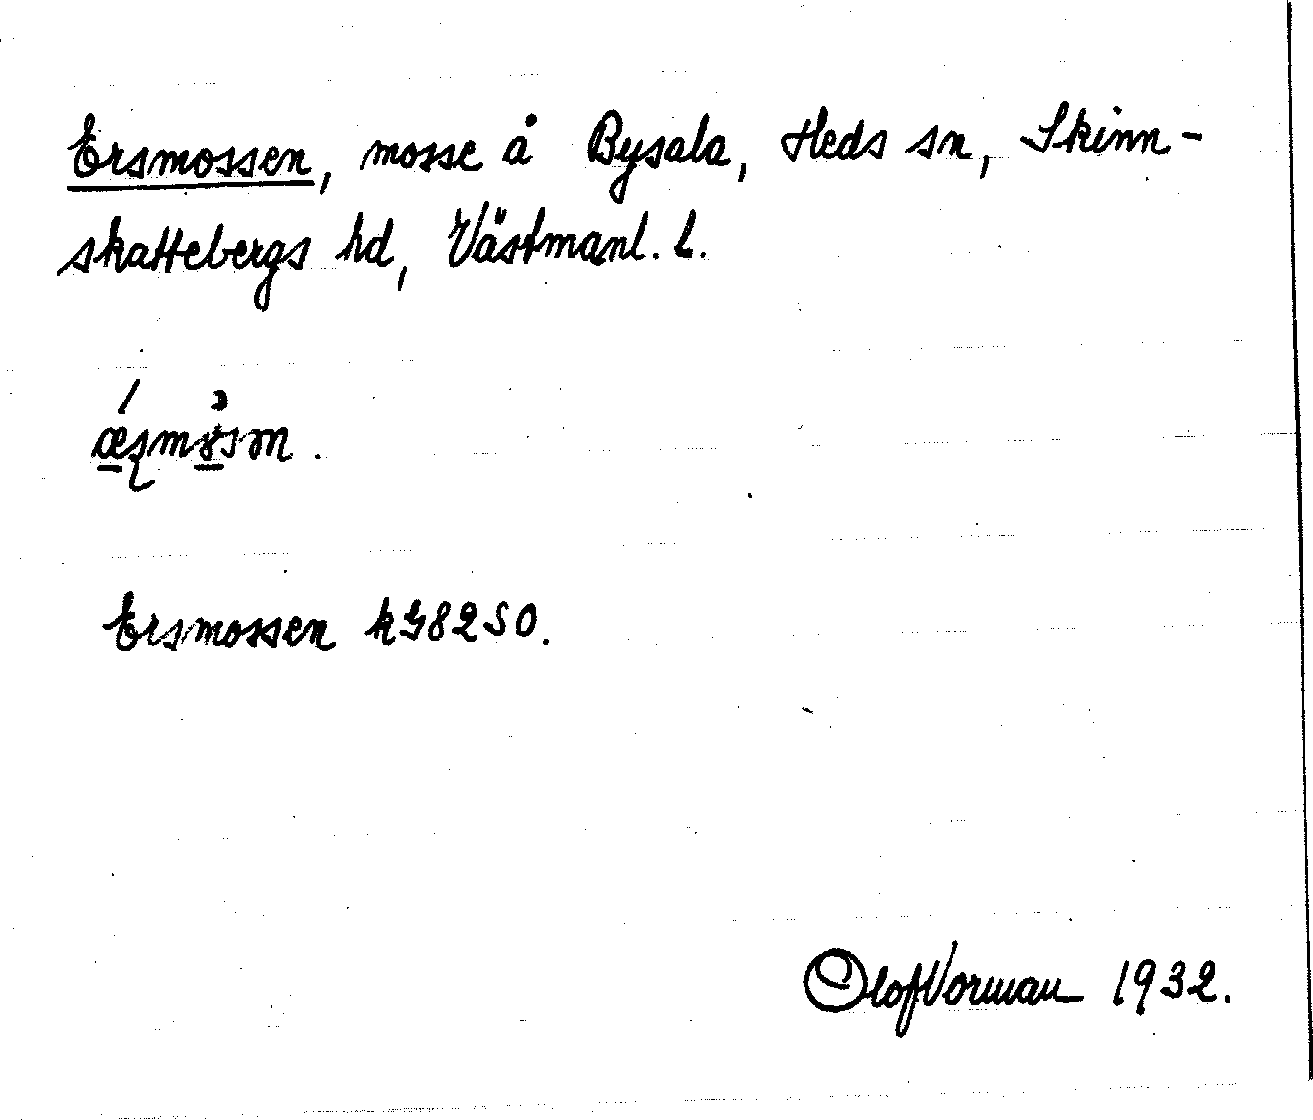 Ersmossen, mosse å Bysala, Heds sn, Skinn-
skattebergs hd, Västmanl. l.
Ersmossen k982SO.
Olof Vorman 1932.